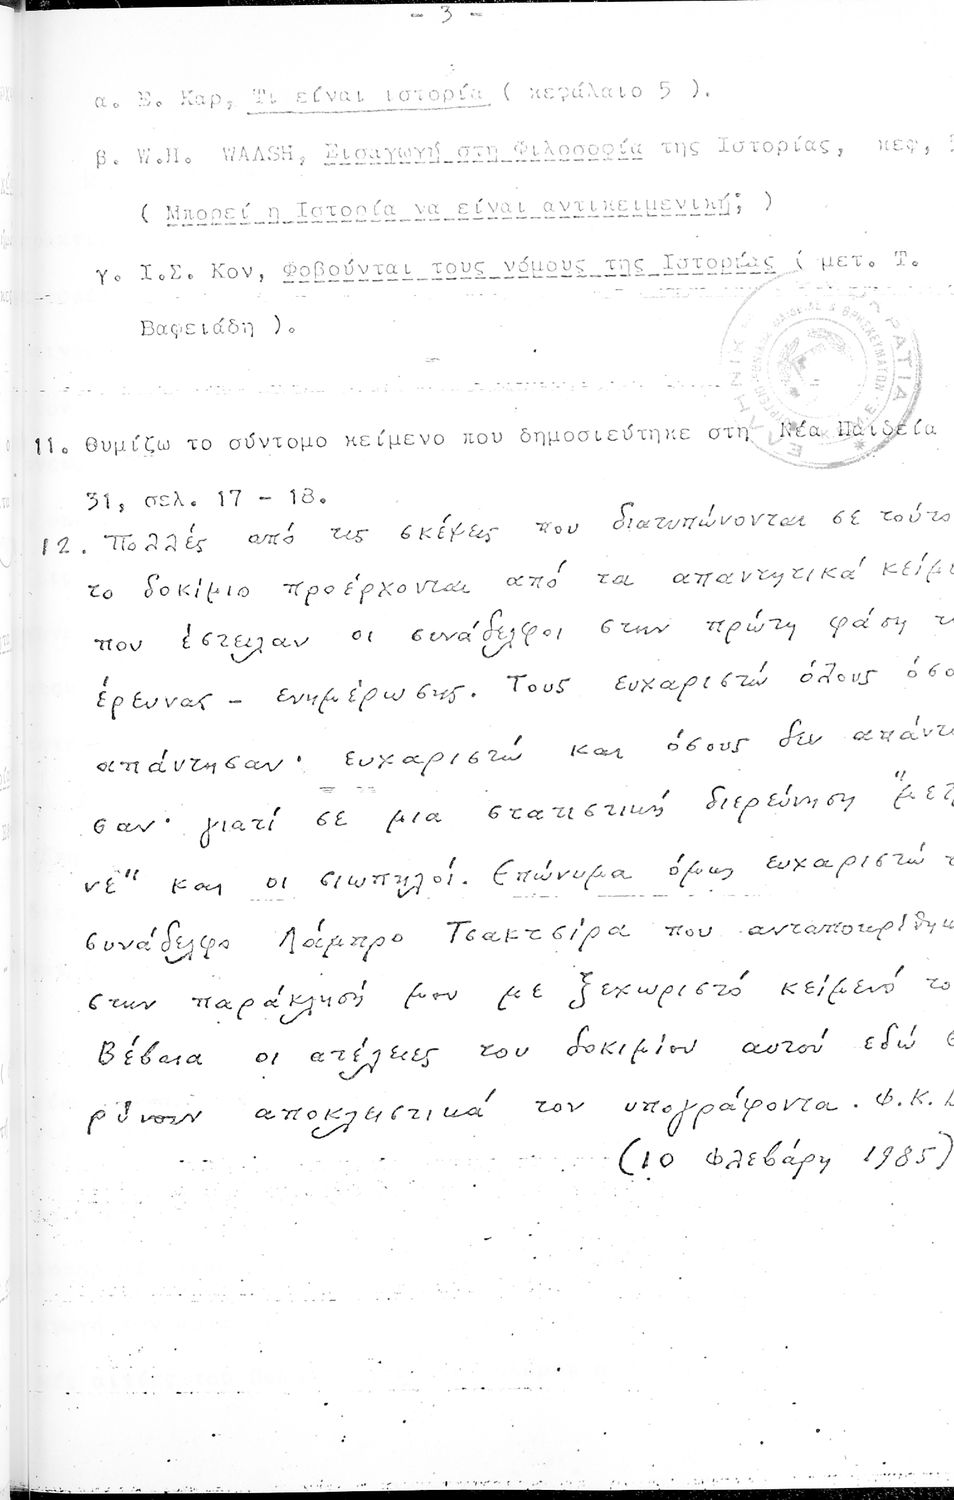 - 3 -
α. Ε. Καρ, Τι είναι ιστορία ( κεφάλαιο 5 ).
β. W.H. WAΛSH, Εισαγωγή στη Φιλοσοφία της Ιστορίας, κεφ,
( Μπορεί η Ιστορία να είναι αντικειμενική; )
γ. Ι.Σ. Κον, Φοβούνται τους νόμους της Ιστορίας ( μετ. Τ.
Βαφειάδη ).
11. Θυμίζω το σύντομο κείμενο που δημοσιεύτηκε στη Νέα Παιδεία
31, σελ. 17 - 18.
12. Πολλές από τις σκέψεις που διατυπώνονται σε τούτο
το δοκίμιο προέρχονται από τα απαντητικά κείμ
που έστειλαν οι συνάδελφοι στην πρώτη φάση τ
έρευνας - ενημέρωσης. Τους ευχαριστώ όλους όσο
απάντησαν· ευχαριστώ και όσους δεν απάντ
σαν· γιατί σε μια στατιστική διερεύνηση "μετ
νε" και οι σιωπηλοί. Επώνυμα όμως ευχαριστώ τ
συνάδελφο Λάμπρο Τσακτσίρα που ανταποκρίθηκ
στην παράκλησή μου με ξεχωριστό κείμενό το
Βέβαια οι ατέλειες του δοκιμίου αυτού εδώ
ρύνουν αποκλειστικά τον υπογράφοντα. Φ.Κ.
(10 Φλεβάρη 1985)